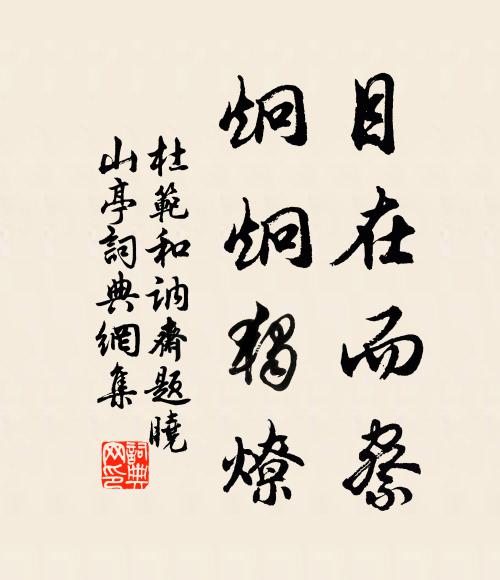 目在而察
炯炯獨燎
杜範和訥齋題曉
山亭詞典網集
詞典網印